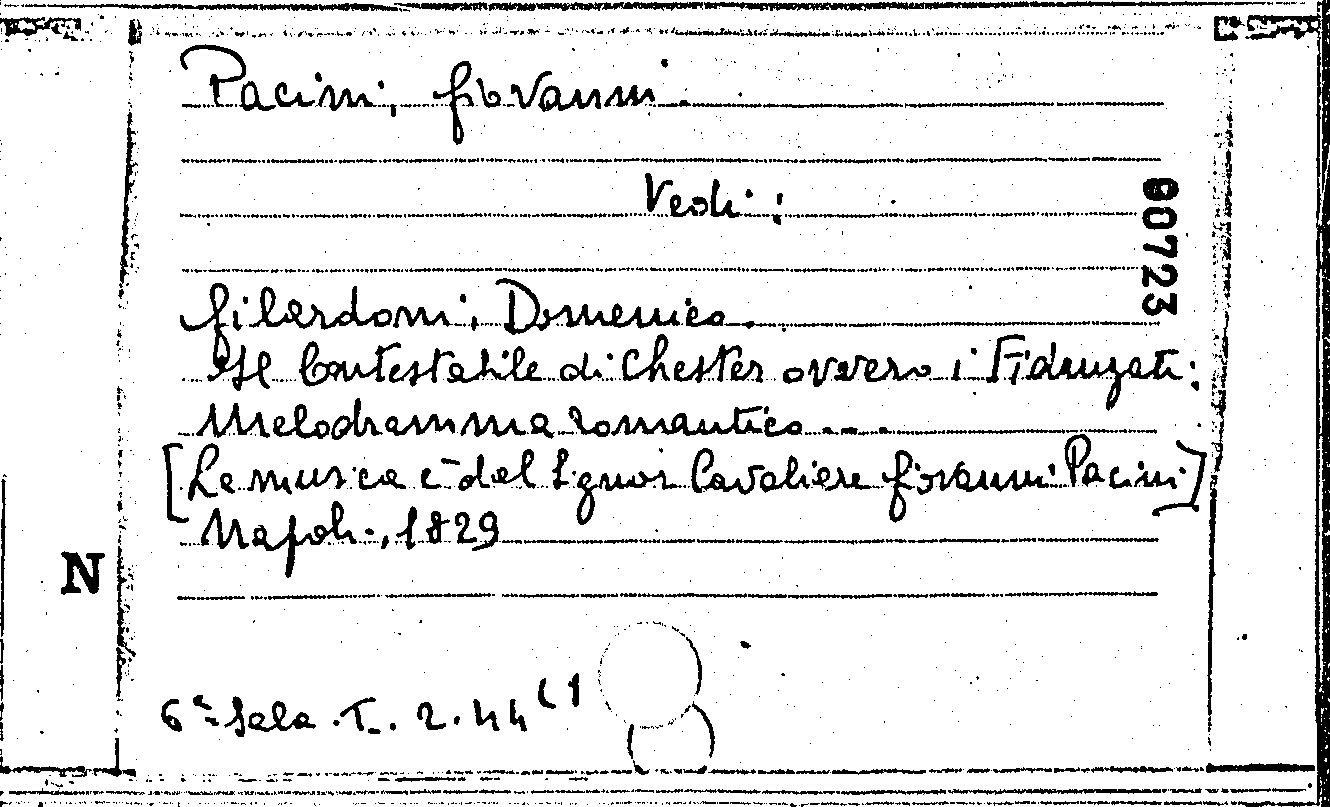 Pacini, Giovanni.
Vedi:
00723
Gilardoni, Domenico.
Il Contestabile di Chester ovvero i Fidanzati:
Melodramma romantico...
[La musica è del Signor Cavaliere Giovanni Pacini]
Napoli, 1829
N
6ª Sala. T. 2. 44 (1